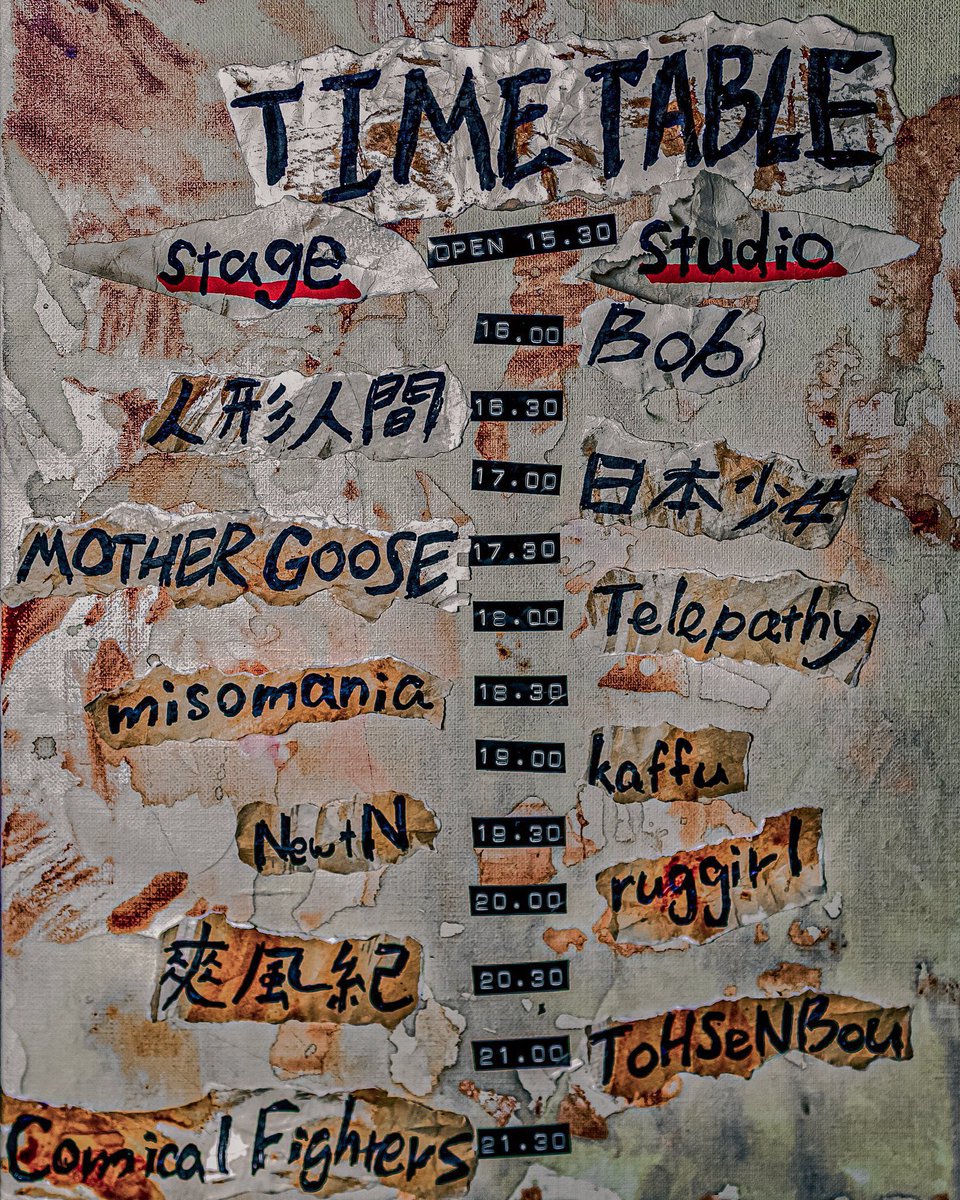 TIME TABLE
stage
OPEN 15.30
studio
16.00
Bob
人形人間
16.30
17.00
日本少年
MOTHER GOOSE
17.30
18.00
Telepathy
misomania
18.30
19.00
kaffu
NewtN
19.30
20.00
ruggirl
爽風紀
20.30
21.00
ToHSeNBou
Comical Fighters
21.30